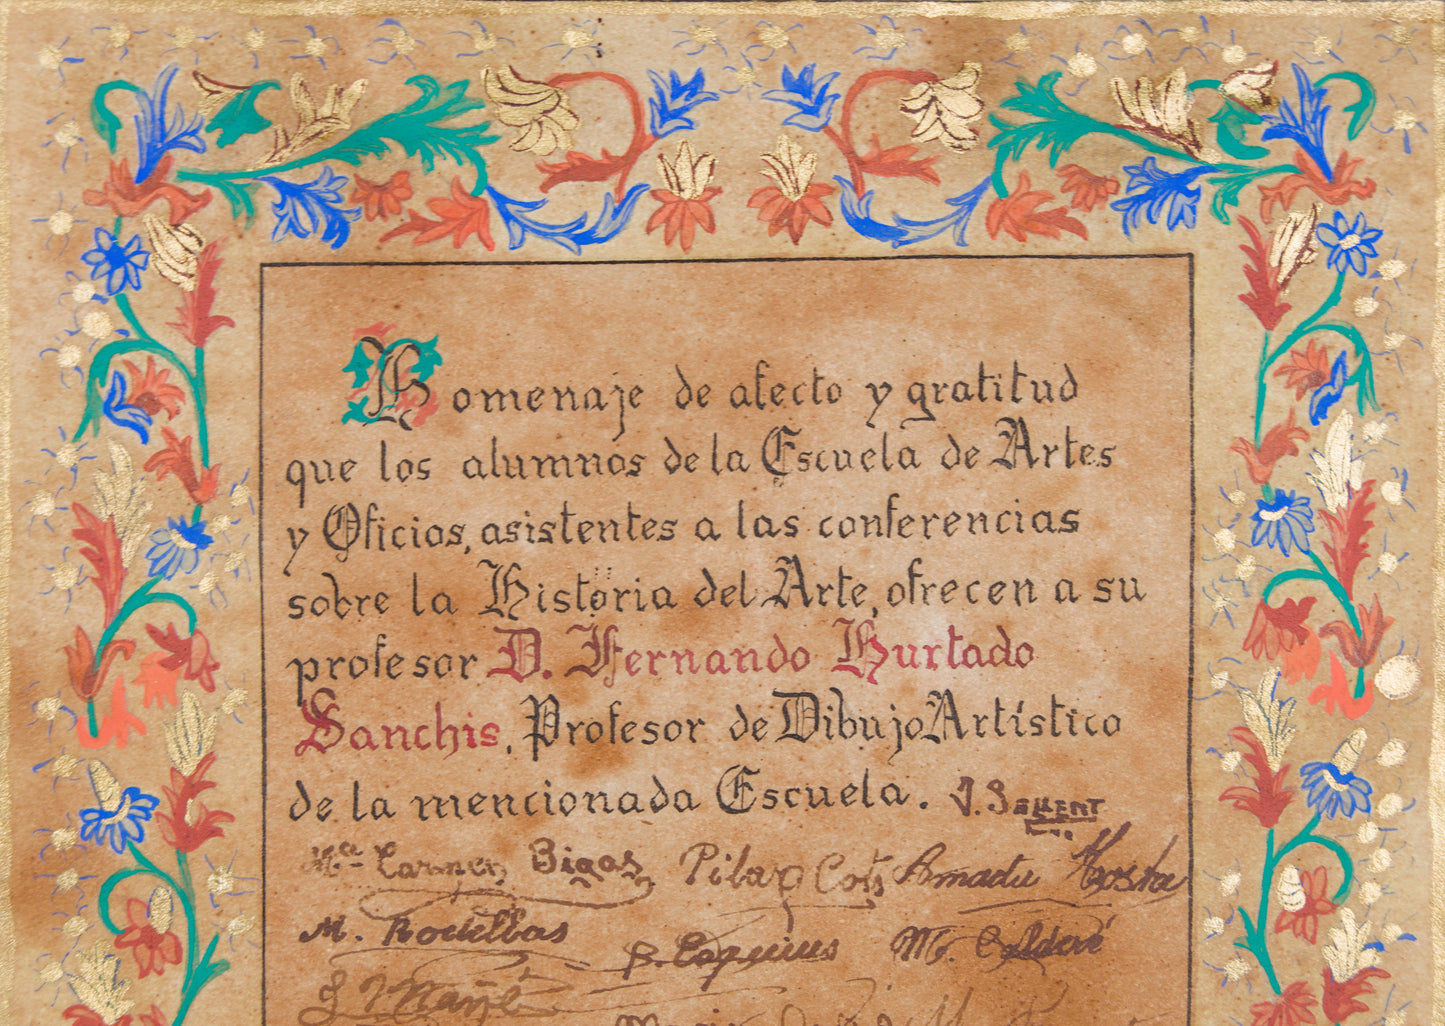 Homenaje de afecto y gratitud
que los alumnos de la Escuela de Artes
y Oficios, asistentes a las conferencias
sobre la Historia del Arte, ofrecen a su
profesor D. Fernando Hurtado
Sanchis, Profesor de Dibujo Artístico
de la mencionada Escuela. J. Sallent
Mª Carmen Bigas Pilar Cots Amadeu
M. Rodellas M. Caldaré